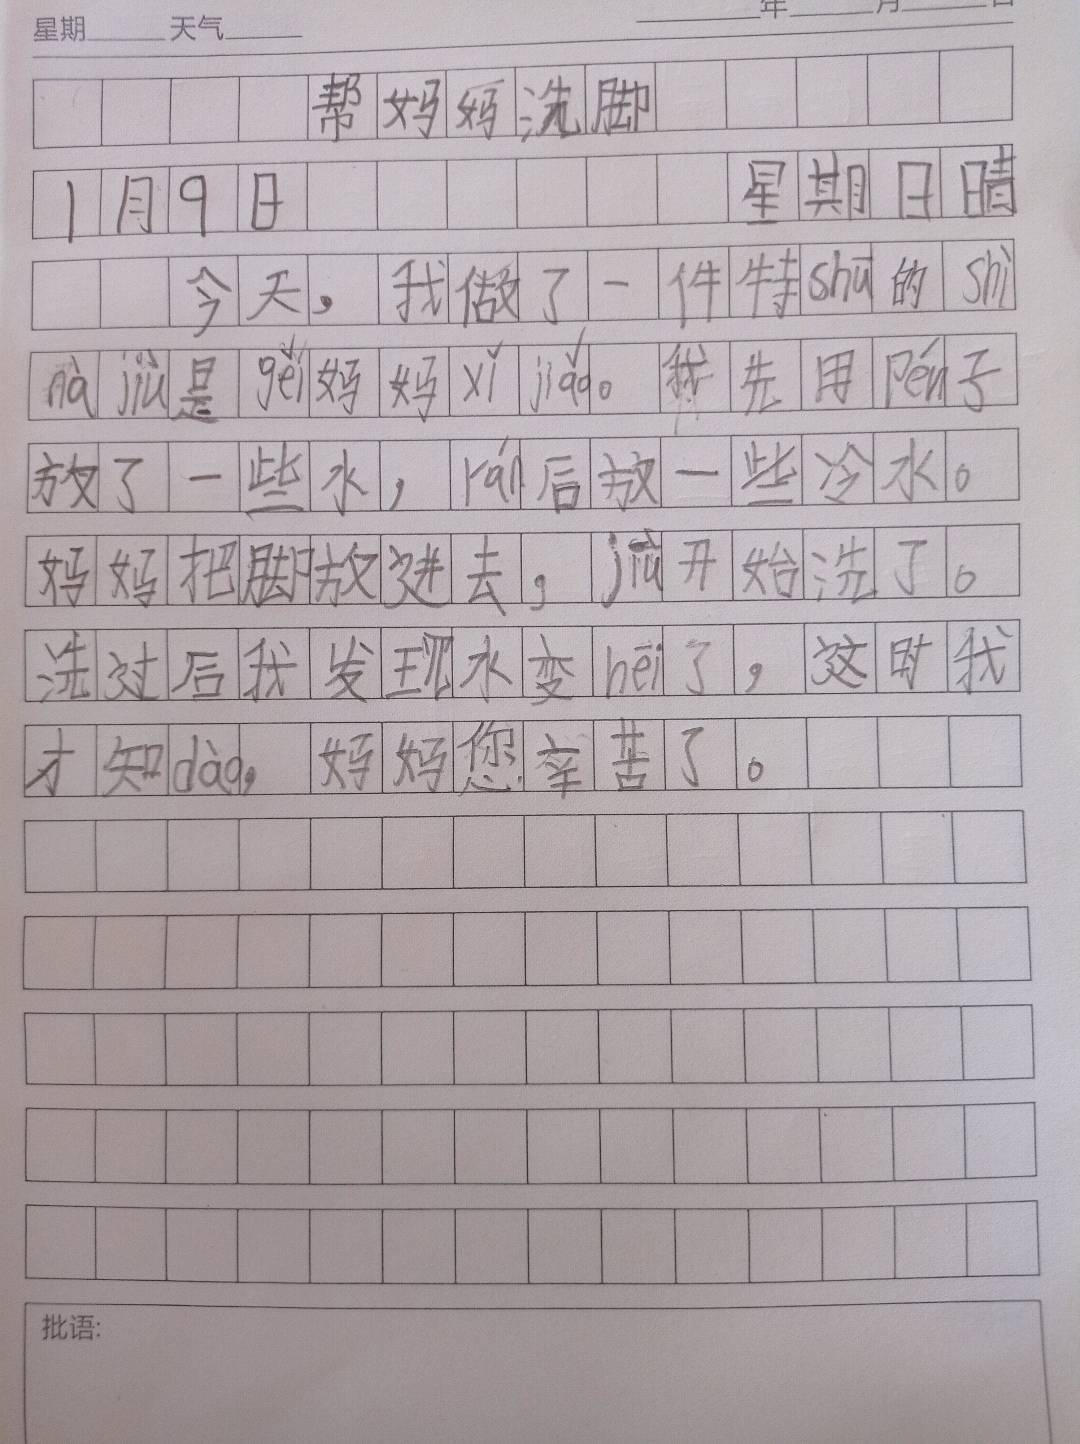 星期______天气______ ______年______月______日
帮妈妈洗脚
1月9日 星期日晴
今天，我做了一件特shū的shì
nà jiù是gěi妈妈xǐ jiǎo。我先用pén子
放了一些水，rán后放一些冷水。
妈妈把脚放进去，jiù开始洗了。
洗过后我发现水变hēi了，这时我
才知dào，妈妈您辛苦了。
批语: